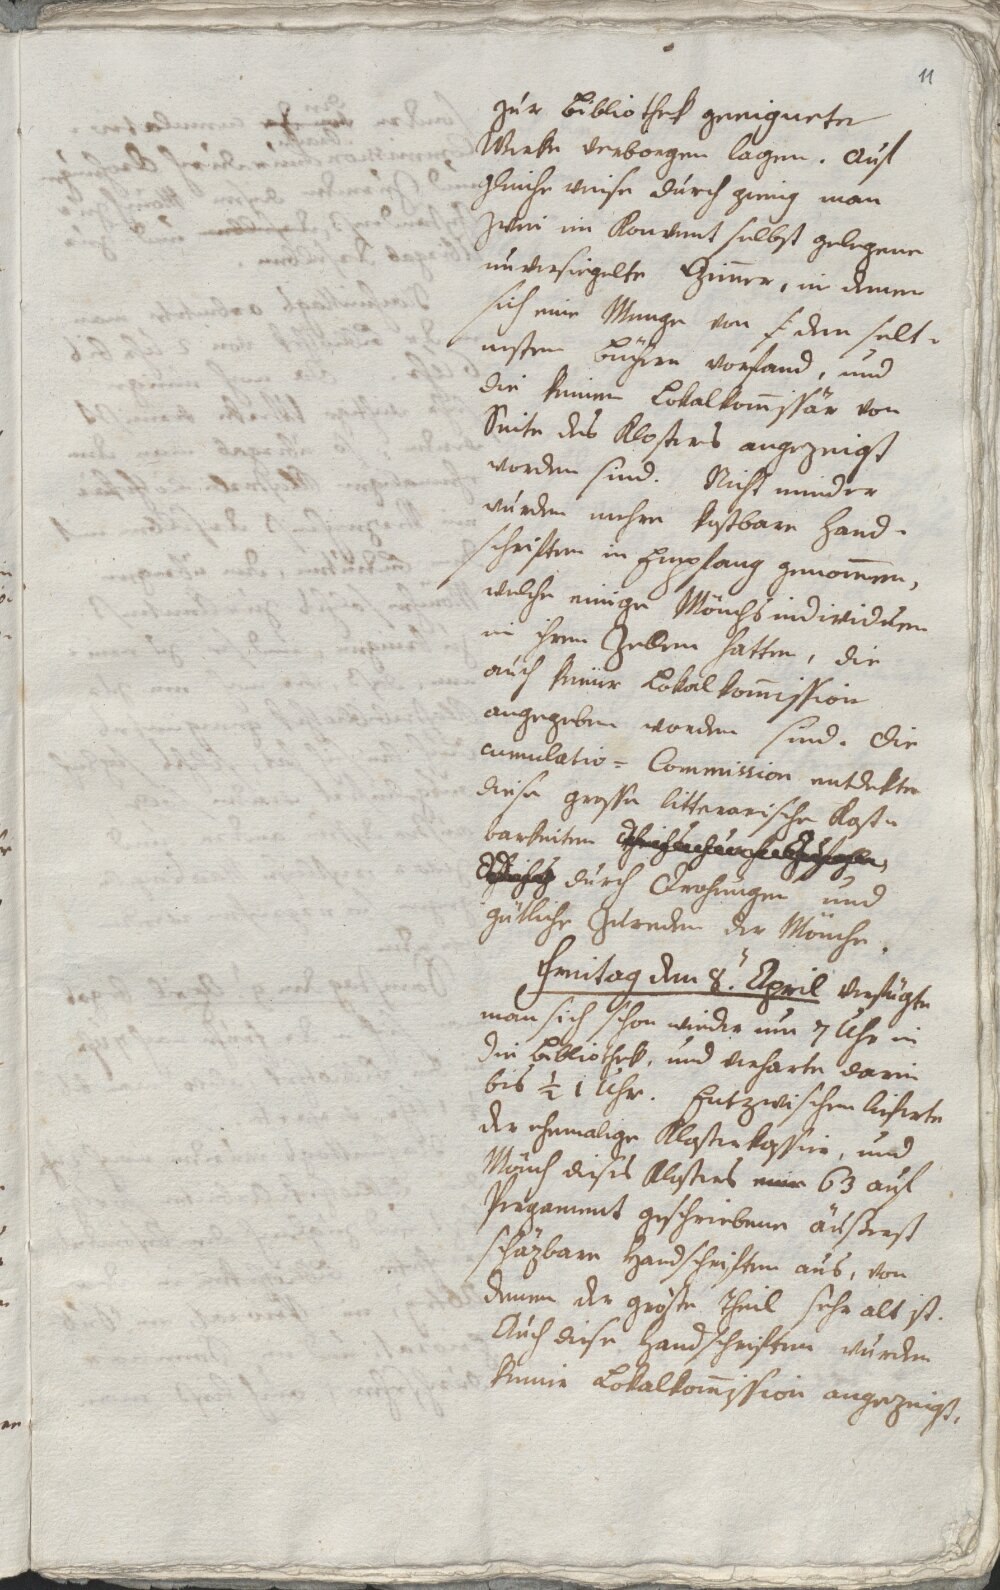 11
zur Bibliothek geeignete
Werke verborgen lagen. Auf
gleiche weise durch gieng man
zwei im Konvent selbst gelegene
unversiegelte Zimer, in denen
sich eine Menge von den selt-
nesten Büchern vorfand, und
die keinem Lokalkomissär von
Seite des Klosters angezeigt
worden sind. Nicht minder
wurden mehre kostbare Hand-
schriften in Empfang genomen,
welche einige Mönchsindividuen
in ihren Zellen hatten, die
auch keiner Lokalkomission
angegeben worden sind. Die
cumulativ= Commission entdekte
diese grosse litterarische Kost-
barkeiten
durch Drohungen und
gütliche Zureden der Mönche.
Freitag den 8. April verfügte
man sich schon wieder um 7 Uhr in
die Bibliothek, und verharte darin
bis ½ 1 Uhr. Entzwischen lieferte
der ehemalige Klosterkassier, und
Mönch dieses Klosters eine 63 auf
Pergament geschriebene äußerst
schäzbare Handschriften aus, von
denen der größte Theil sehr alt ist.
Auch diese Handschriften wurden
keiner Lokalkomission angezeigt,